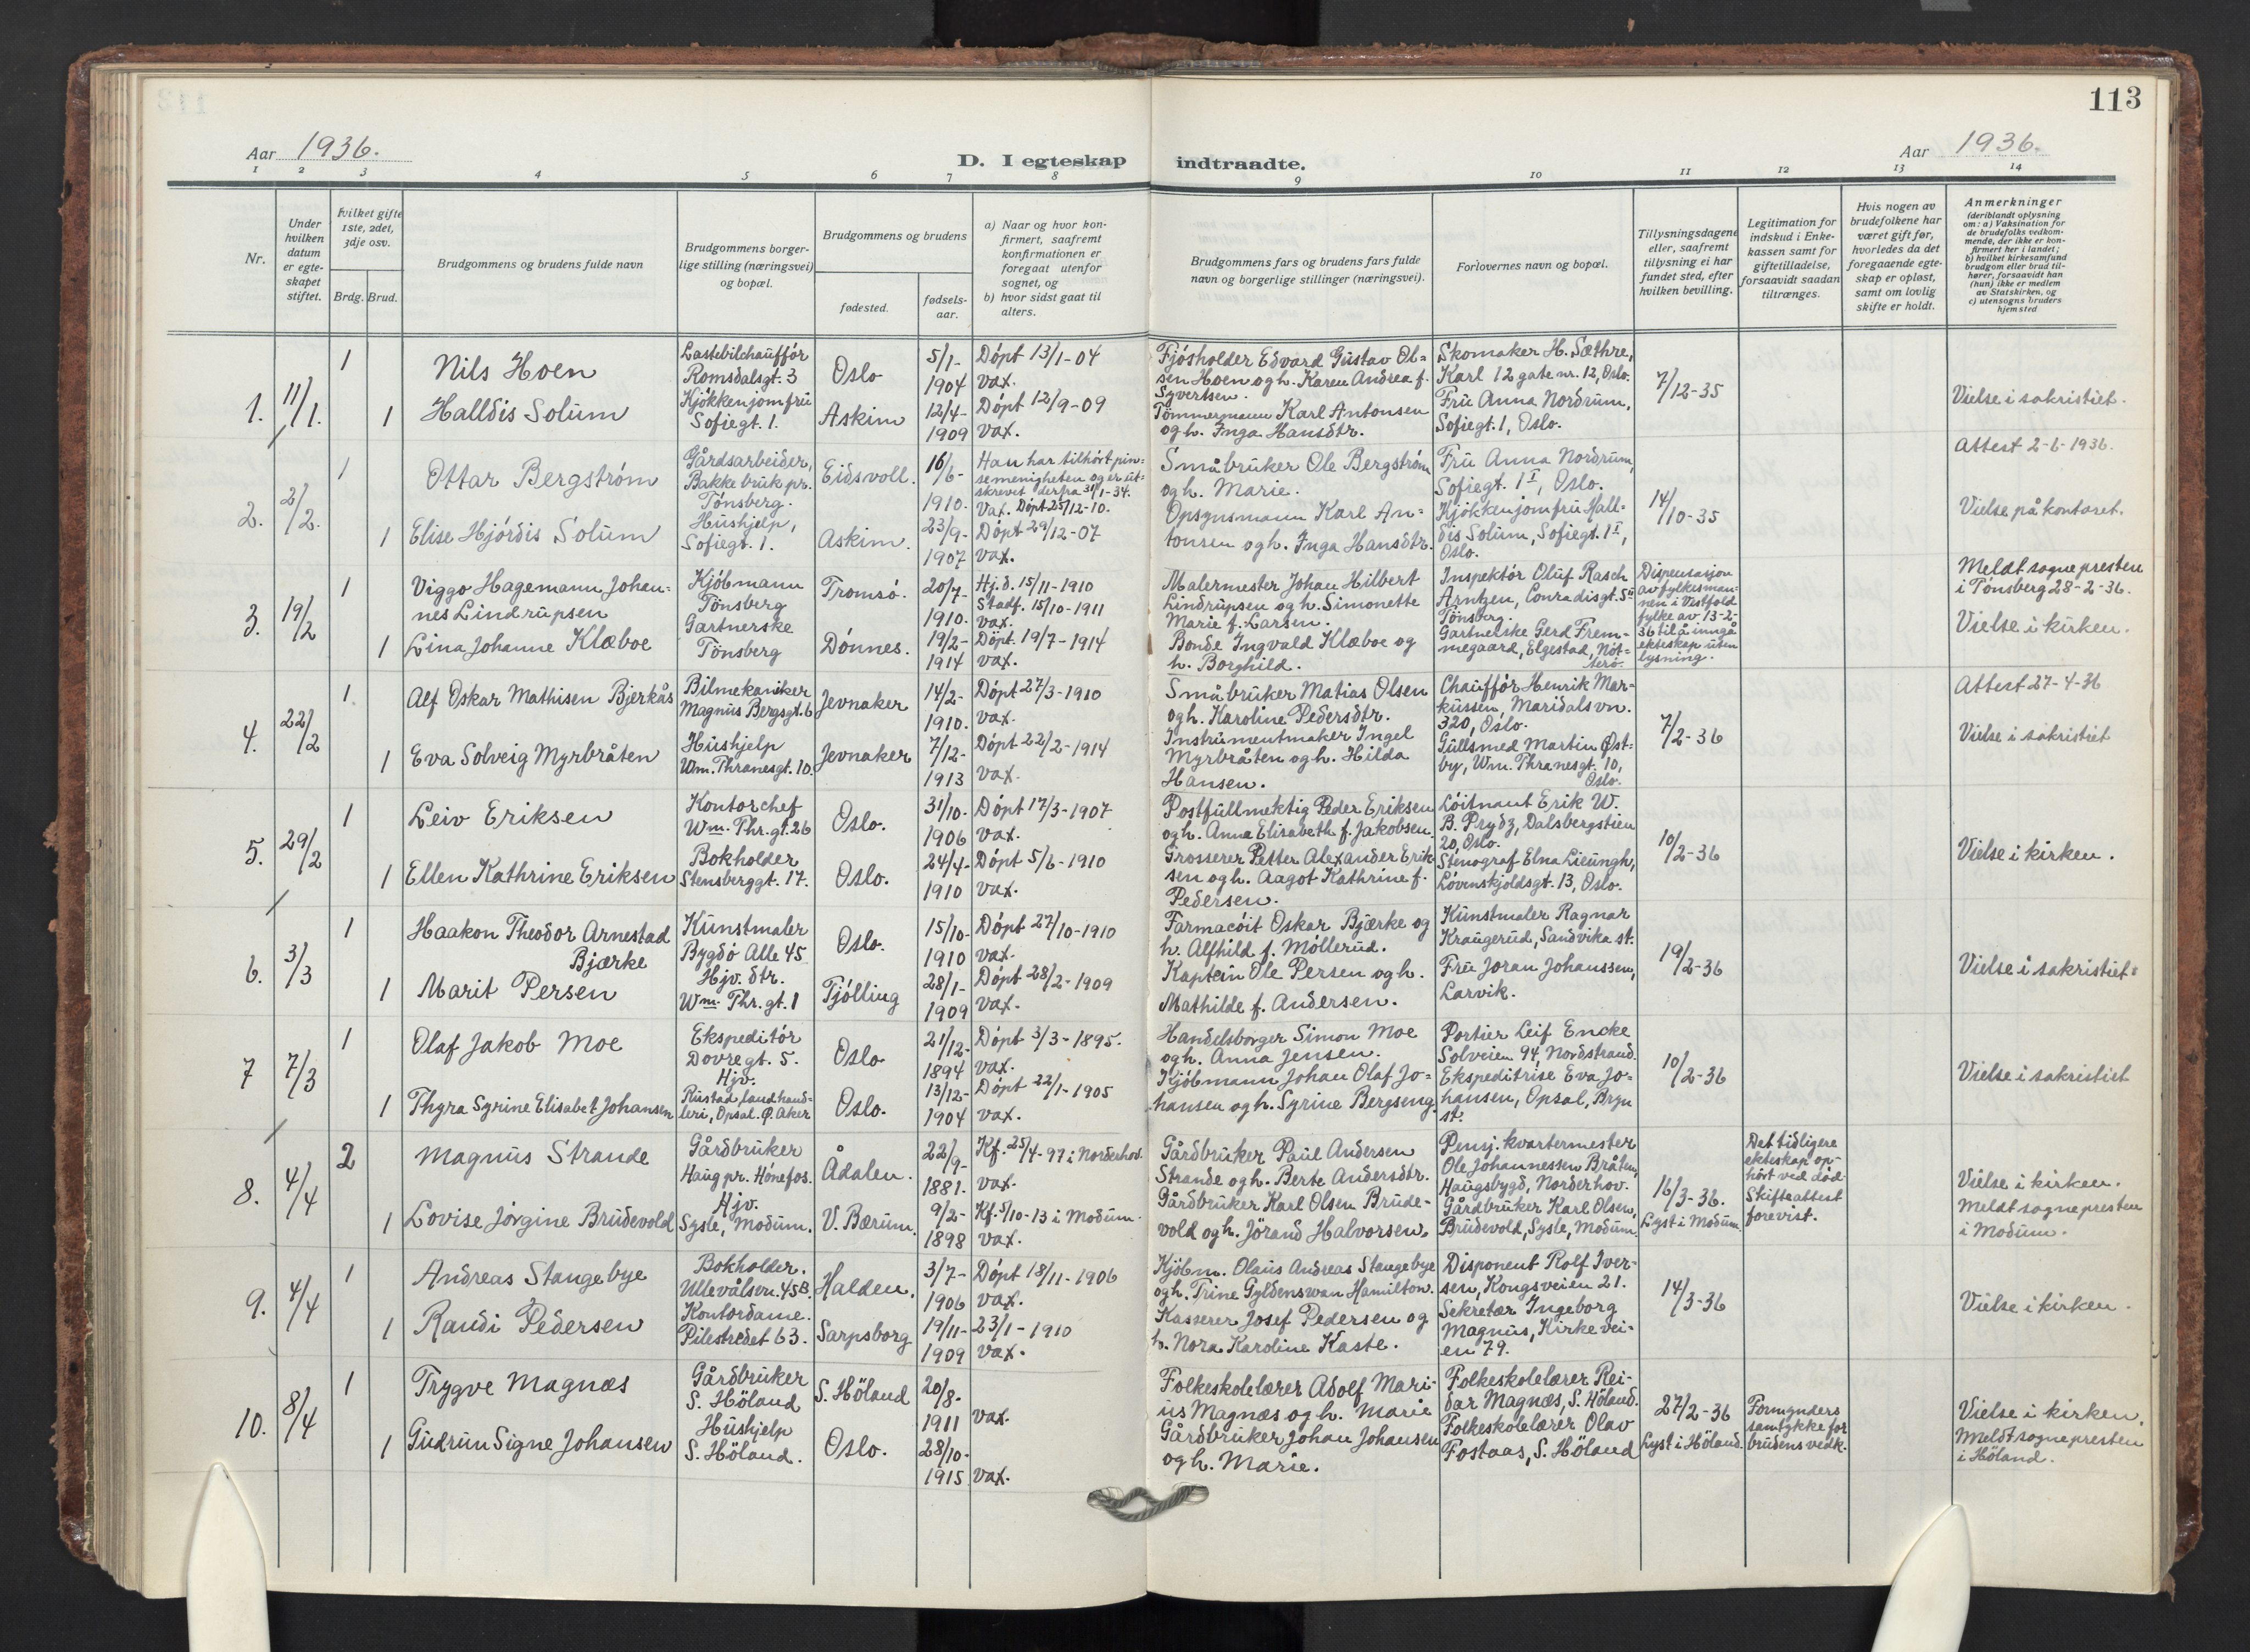 113
Aar 1936.
D. I egteskap indtraadte.
Aar 1936.
1 2 3 4 5 6 7 8 9 10 11 12 13 14
Nr.
Under hvilken datum er egteskapet stiftet.
Hvilket gifte 1ste, 2det, 3dje osv.
Brdg. Brud.
Brudgommens og brudens fulde navn
Brudgommens borgerlige stilling (næringsvei) og bopæl.
Brudgommens og brudens
fødested.
fødselsaar.
a) Naar og hvor konfirmert, saafremt konfirmationen er foregaat utenfor sognet, og
b) hvor sidst gaat til alters.
Brudgommens fars og brudens fars fulde navn og borgerlige stillinger (næringsvei).
Forlovernes navn og bopæl.
Tillysningsdagene eller, saafremt tillysning ei har fundet sted, efter hvilken bevilling.
Legitimation for indskud i Enkekassen samt for giftetilladelse, forsaavidt saadan tiltrænges.
Hvis nogen av brudefolkene har været gift før, hvorledes da det foregaaende egteskap er opløst, samt om lovlig skifte er holdt.
Anmerkninger
(deriblandt oplysning om: a) Vaksination for de brudefolks vedkommende, der ikke er konfirmert her i landet; b) hvilket kirkesamfund brudgom eller brud tilhører, forsaavidt han (hun) ikke er medlem av Statskirken, og c) utensogns bruders hjemsted
1. 11/1.
1 Nils Hoen
Lastebilchauffór
Romsdalsgt. 3
Oslo
5/1-
1904
Dópt 13/1-04
vax.
Fjósholder Edvard Gustav Ol=
sen Hoen og h. Karen Andrea f.
Syvertsen.
Skomaker H. Sæthre,
Karl 12 gate nr. 12, Oslo.
1 Halldis Solum
Kjókkenjomfru
Sofiegt. 1.
Askim
12/4-
1909
Dópt 12/9-09
vax.
Tómmermann Karl Antonsen
og h. Inga Hansdtr.
Fru Anna Nordrum,
Sofiegt. 1, Oslo.
7/12-35
Vielse i sakristiet.
2. 2/2.
1 Ottar Bergstróm
Gårdsarbeider,
Bakke bruk pr.
Tónsberg.
Eidsvoll.
16/6-
1910.
Han har tilhórt pin=
semenigheten og er ut=
skrevet derfra 31/1-34.
Vax. Dópt 25/12-10.
Småbruker Ole Bergstróm
og h. Marie.
Fru Anna Nordrum,
Sofiegt. 1 I, Oslo.
1 Elise Hjórdis Solum
Hushjelp,
Sofiegt. 1.
Askim.
23/9-
1907
Dópt 29/12-07
vax.
Opsynsmann Karl An=
tonsen og h. Inga Hansdtr.
Kjókkenjomfru Hall=
dis Solum, Sofiegt. 1 I,
Oslo.
14/10-35
Attest 2-6-1936.
Vielse på kontoret.
3. 19/2
1 Viggo Hagemann Johan=
nes Lindrupsen
Kjóbmann
Tónsberg
Tromsó.
20/7-
1910.
Hj. d. 15/11-1910
Stadf. 15/10-1911
vax.
Malermester Johan Hilbert
Lindrupsen og h. Simonette
Marie f. Larsen.
Inspektór Oluf Rasch
Arntzen, Conradisgt. 5
Tónsberg.
1 Lina Johanne Klæboe
Gartnerske
Tónsberg
Dónnes.
19/2-
1914
Dópt. 19/7-1914
vax.
Bonde Ingvald Klæboe og
h. Borghild.
Gartnerske Gerd Frem=
megaard, Elgestad, Nót=
teró.
Dispensasjon
av fylkesman=
nen i Vestfold
fylke av 13-2-
36 til å inngå
ekteskap uten
lysning.
Meldt sognepresten
i Tónsberg 28-2-36.
Vielse i kirken.
4. 22/2
1 Alf Oskar Mathisen Bjerkås
Bilmekaniker
Magnus Bergsgt. 6
Jevnaker
14/2-
1910.
Dópt 27/3-1910
vax.
Småbruker Matias Olsen
og h. Karoline Pedersdtr.
Chauffór Henrik Mar=
kussen, Maridalsvn.
320, Oslo.
1 Eva Solveig Myrbråten
Hushjelp
Wm. Thranesgt. 10.
Jevnaker
7/12-
1913
Dópt 22/2-1914
vax.
Instrumentmaker Ingel
Myrbråten og h. Hilda
Hansen.
Gullsmed Martin Øst=
by, Wm. Thranesgt. 10,
Oslo.
7/2-36
Attest 27-4-36
Vielse i sakristiet
5. 29/2
1 Leiv Eriksen
Kontorchef
Wm. Thr. gt. 26
Oslo.
31/10-
1906
Dópt 17/3-1907
vax.
Postfullmektig Peder Eriksen
og h. Anna Elisabeth f. Jakobsen.
Lóitnant Erik W.
B. Prydz, Dalsbergstien
20, Oslo.
1 Ellen Kathrine Eriksen
Bokholder
Stensberggt. 17.
Oslo.
24/4-
1910
Dópt 5/6-1910
vax.
Grosserer Petter Alexander Erik=
sen og h. Aagot Kathrine f.
Pedersen.
Stenograf Elna Lieungh,
Lóvenskjoldsgt. 13, Oslo.
10/2-36
Vielse i kirken.
6. 3/3
1 Haakon Theodor Arnestad
Bjærke
Kunstmaler
Bygdó Alle 45
Oslo.
15/10-
1910
Dópt 27/10-1910
vax.
Farmacóit Oskar Bjærke og
h. Alfhild f. Móllerud.
Kunstmaler Ragnar
Kraugerud, Sandvika st.
1 Marit Persen
Hjv. dtr.
Wm. Thr. gt. 1
Tjólling
28/1-
1909
Dópt 28/2-1909
vax.
Kaptein Ole Persen og h.
Mathilde f. Andersen.
Fru Joran Johanssen,
Larvik.
19/2-36
Vielse i sakristiet.
7 7/3
1 Olaf Jakob Moe
Ekspeditór
Dovregt. 5.
Oslo
21/12-
1894
Dópt 3/3-1895.
vax.
Handelsborger Simon Moe
og h. Anna Jensen.
Portier Leif Encke
Solveien 94, Nordstrand.
1 Thyra Syrine Elisabet Johansen
Hjv.
Rustad landhand=
leri, Opsal. Ø. Aker
Oslo.
13/12-
1904
Dópt 22/1-1905
vax.
Kjóbmann Johan Olaf Jo=
hansen og h. Syrine Bergseng.
Ekspeditrise Eva Jo=
hansen, Opsal, Bryn
st.
10/2-36
Vielse i sakristiet
8. 4/4
2 Magnus Strande
Gårdbruker
Haug pr. Hónefos.
Ådalen.
22/9-
1881.
Kf. 25/4-97 i Norderhov.
vax.
Gårdbruker Paul Andersen
Strande og h. Berte Andersdtr.
Pensj. kvartermester
Ole Johannessen Bråten,
Haugsbygd, Norderhov.
1 Lovise Jórgine Brudevold
Hjv.
Sysle, Modum.
V. Bærum.
9/2-
1898
Kf. 5/10-13 i Modum.
vax.
Gårdbruker Karl Olsen Brude=
vold og h. Jórand Halvorsen.
Gårdbruker Karl Olsen,
Brudevold, Sysle, Modum.
16/3-36.
Lyst i Modum.
Det tidligere
ekteskap op=
hórt ved död
Skifteattest
forevist.
Vielse i kirken.
Meldt sognepresten
i Modum.
9. 4/4
1 Andreas Stangebye
Bokholder.
Ullevålsvn. 45B.
Halden.
3/7-
1906
Dópt 18/11-1906
vax.
Kjóbm. Olaus Andreas Stangebye
og h. Trine Gyldenswan Hamilton.
Disponent Rolf Iver=
sen, Kongsveien 21.
1 Randi Pedersen
Kontordame.
Pilestredet 63.
Sarpsborg
19/11-
1909
23/1-1910
vax.
Kasserer Josef Pedersen og
h. Nora Karoline Kaste.
Sekretær Ingeborg
Magnus, Kirkevei=
en 79.
14/3-36
Vielse i kirken.
10. 8/4
1 Trygve Magnæs
Gårdbruker
S. Höland
S. Höland
20/8-
1911
vax.
Folkeskolelærer Adolf Mari=
us Magnæs og h. Marie
Folkeskolelærer Rei=
dar Magnæs, S. Höland.
1 Gudrun Signe Johansen
Hushjelp
S. Höland.
Oslo.
28/10-
1915
vax.
Gårdbruker Johan Johansen
og h. Marie.
Folkeskolelærer Olav
Fostaas, S. Höland
27/2-36
Lyst i Höland.
Formynders
samtykke for
brudens vedk.
Vielse i kirken.
Meldt sognepresten
i Höland.